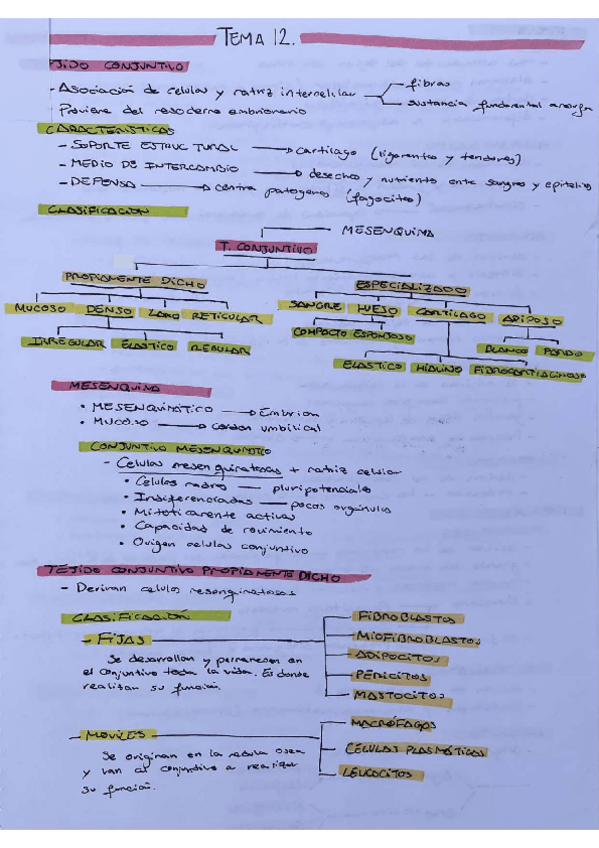 TEMA 12.
TEJIDO CONJUNTIVO
- Asociación de celulas y matriz intercelular
fibras
sustancia fundamental amorfa
Proviene del mesodermo embrionario
CARACTERISTICAS
- SOPORTE ESTRUCTURAL → cartilago (ligamentos y tendones)
- MEDIO DE INTERCAMBIO → desechos y nutriento entre sangre y epitelio
- DEFENSA → contra patogenos (fagocitos)
CLASIFICACION
MESENQUIMA
T. CONJUNTIVO
PROPIAMENTE DICHO
ESPECIALIZADO
MUCOSO DENSO LAXO RETICULAR
SANGRE HUESO CARTILAGO ADIPOSO
IRREGULAR ELASTICO REGULAR
COMPACTO ESPONJOSO
BLANCO PARDO
ELASTICO HIALINO FIBROCARTILAGINOSO
MESENQUIMA
• MESENQUIMÁTICO → Embrion
• MUCOSO → cordon umbilical
CONJUNTIVO MESENQUIMATICO
- Celulas mesenquimatosas + matriz celular
• Celulas madres — pluripotenciales
• Indiferenciadas — pocos orgánulos
• Mitoticamente activas
• Capacidad de movimiento
• Origen celulas conjuntivo
TEJIDO CONJUNTIVO PROPIAMENTE DICHO
- Derivan celulas mesenquimatosas
CLASIFICACIÓN
- FIJAS
Se desarrollan y permanecen en
el conjuntivo toda la vida. Es donde
realizan su función.
FIBROBLASTOS
MIOFIBROBLASTOS
ADIPOCITOS
PERICITOS
MASTOCITOS
- MOVILES
Se originan en la medula osea
y van al conjuntivo a realizar
su función.
MACRÓFAGOS
CÉLULAS PLASMÁTICAS
LEUCOCITOS